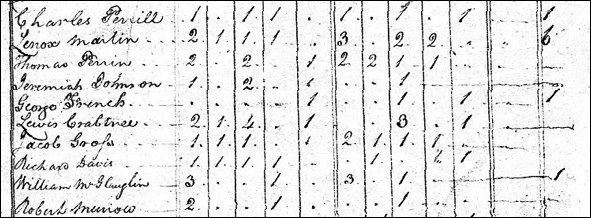 Charles Perrill 1 . 1 1 . . 1 . 1 . 1 . . 1
Lenox Martin 2 1 1 1 . . 3 . 2 2 . . . 6
Thomas Perrin 2 . 2 . . 1 2 2 1 1
Jeremiah Johnson 1 . . 2 . . 1 . . . 1
George French . . . . . 1 . . . 1 . 1 . 1
Lewis Crabtree 2 1 4 . . 1 . . 3 . . 1
Jacob Gross 1 1 1 . . 1 2 1 1 1
Richard Davis 1 1 1 1 . . . 1 . . 1
William McGlauglin 3 . . 1 . . 3 . 1 . . . . 1
Robert Munrow 2 . . 1 . . . . 1